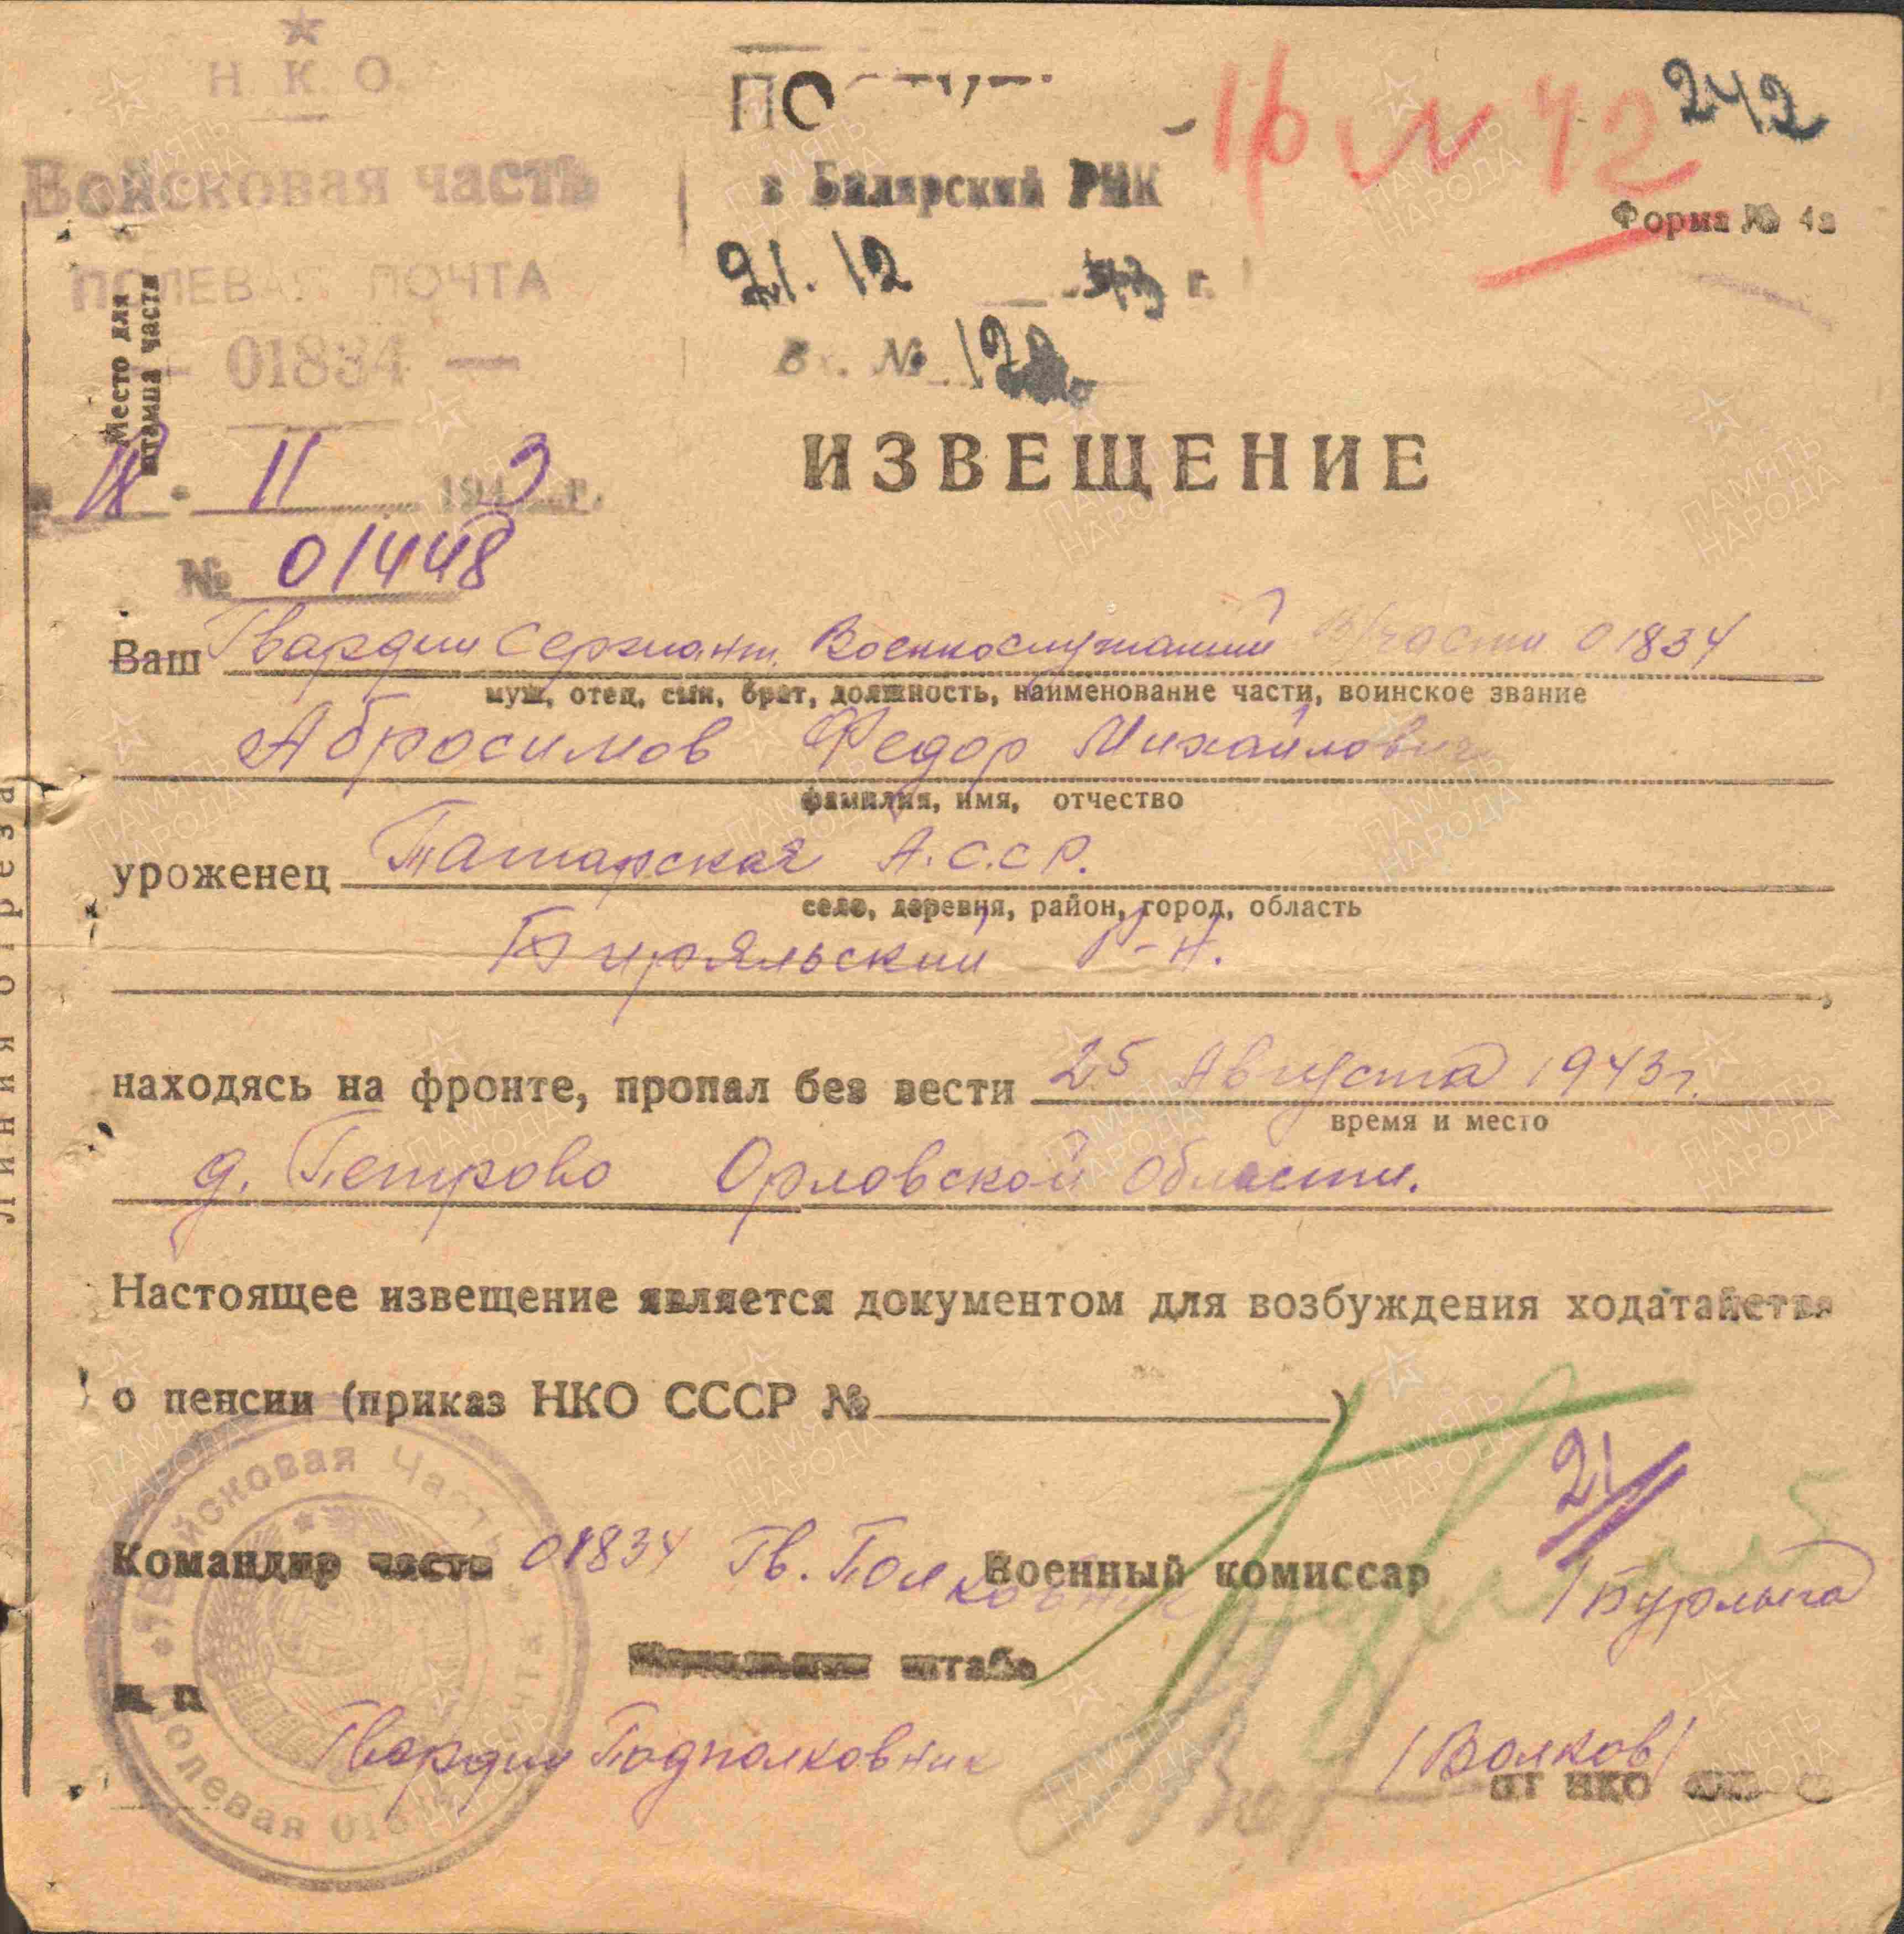 Н. К. О.
Войсковая часть
ПОЛЕВАЯ ПОЧТА
— 01834 —
Место для
штемпа части
11 1943 г.
№ 01448
в Билярский РИК
21. 12 43 г.
Вх. №
№ 42
242
Форма № 4а
ИЗВЕЩЕНИЕ
Ваш Гвардии Сержант. Военнослужащий В/части 01834
муж, отец, сын, брат, должность, наименование части, воинское звание
Абросимов Федор Михайлович
фамилия, имя, отчество
уроженец Татарская А.С.С.Р.
село, деревня, район, город, область
Биряльский Р-н.
находясь на фронте, пропал без вести 25 Августа 1943 г.
время и место
д. Петрово Орловской области.
Настоящее извещение является документом для возбуждения ходатайства
о пенсии (приказ НКО СССР № )
Командир части 01834 Гв. Полковник Военный комиссар /Бурлыга
21/11
штаба
м п
Гвардии Подполковник /Волков/
от НКО
Войсковая Часть
Полевая
Линия отреза
ПАМЯТЬ НАРОДА